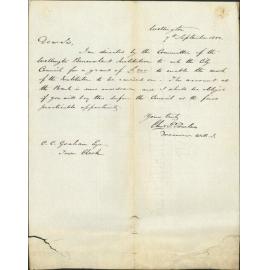 Wellington
9th September 1880
Dear Sir,
I am directed by the Committee of the
Wellington Benevolent Institution to ask the City
Council for a grant of £ to enable the work
of the Institution to be carried on. The account at
the Bank is now overdrawn and I shall be obliged
if you will lay this before the Council at the first
practicable opportunity.
Yours truly
Treasurer W.B.I.
C. C. Graham Esq
Town Clerk